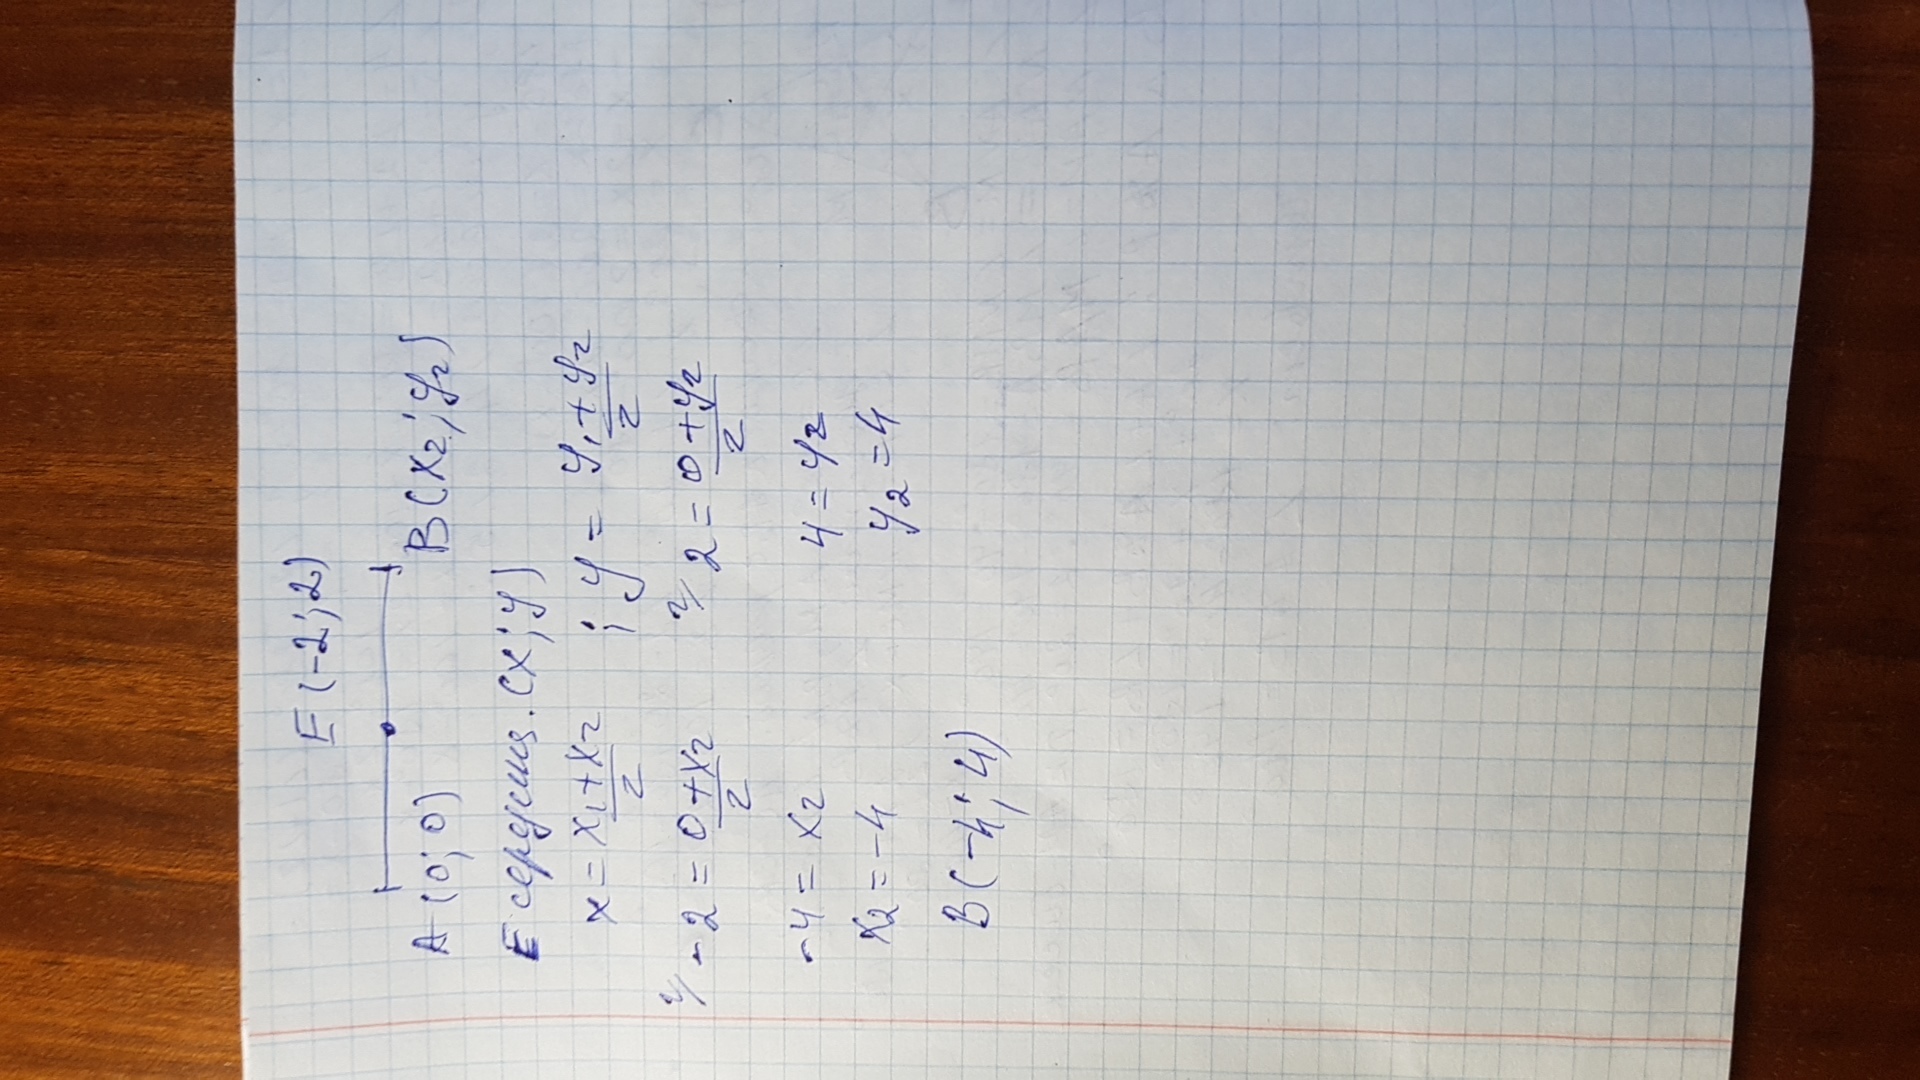 E(-2;2)
A(0;0) B(x₂;y₂)
E середина. (x;y)
x = x₁+x₂/2 ; y = y₁+y₂/2
2/ -2 = 0+x₂/2 2/ 2 = 0+y₂/2
-4 = x₂ 4 = y₂
x₂ = -4 y₂ = 4
B(-4;4)